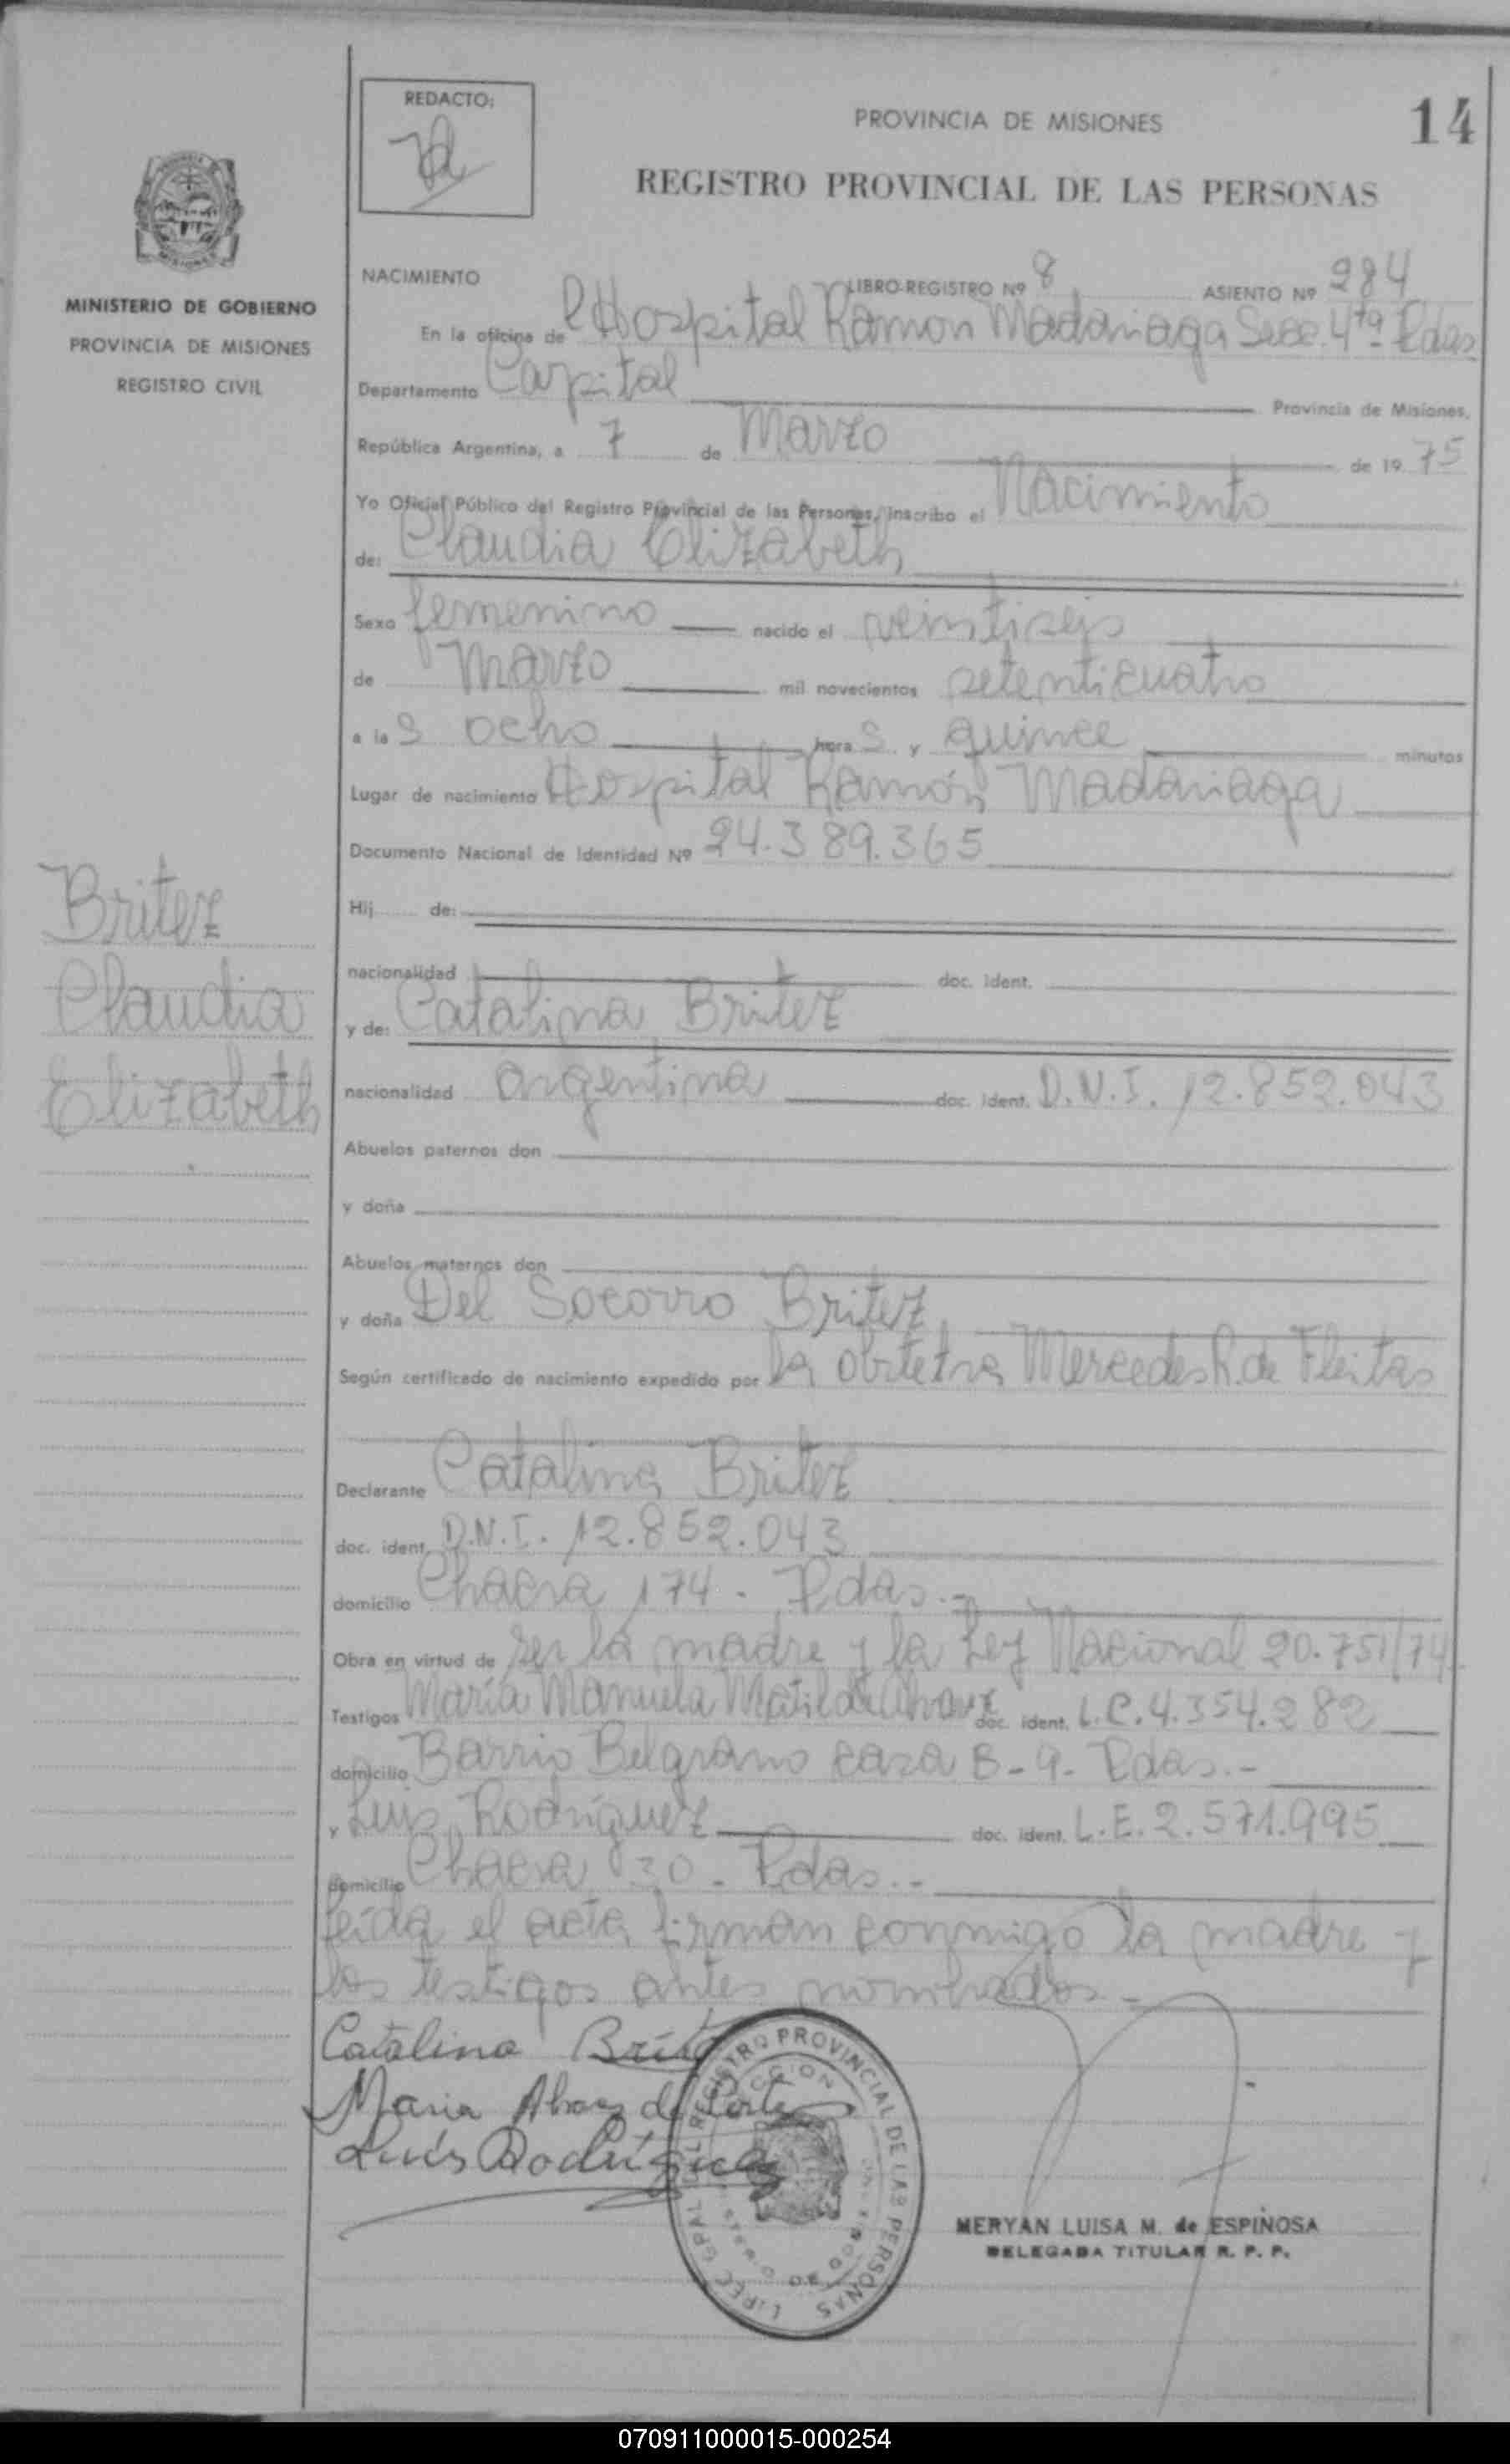 REDACTO:
PROVINCIA DE MISIONES
14
REGISTRO PROVINCIAL DE LAS PERSONAS
MINISTERIO DE GOBIERNO
PROVINCIA DE MISIONES
REGISTRO CIVIL
NACIMIENTO LIBRO-REGISTRO Nº 8 ASIENTO Nº 284
En la oficina de Hospital Ramon Madariaga Secc. 4ta Pdas
Departamento Capital Provincia de Misiones,
República Argentina, a 7 de Marzo de 19 75
Yo Oficial Público del Registro Provincial de las Personas, inscribo el Nacimiento
de: Claudia Elizabeth
Sexo femenino nacido el veintiseis
de Marzo mil novecientos setenticuatro
a las ocho horas y quince minutos
Lugar de nacimiento Hospital Ramón Madariaga
Documento Nacional de Identidad Nº 24.389.365
Britez
Claudia
Elizabeth
Hij de:
nacionalidad doc. ident.
y de: Catalina Britez
nacionalidad argentina doc. ident. D.N.I. 12.852.043
Abuelos paternos don
y doña
Abuelos maternos don
y doña Del Socorro Britez
Según certificado de nacimiento expedido por la obstetra Mercedes R. de Fleitas
Declarante Catalina Britez
doc. ident. D.N.I. 12.852.043
domicilio Chacra 174 - Pdas.-
Obra en virtud de ser la madre y la Ley Nacional 20.751/74
Testigos María Manuela Matilde doc. ident. L.C. 4.354.282
domicilio Barrio Belgrano casa B-9- Pdas.-
y Luis Rodriguez doc. ident. L.E. 2.571.995
domicilio Chacra 30 - Pdas.-
leída el acta firman conmigo la madre y
los testigos antes nombrados -
Catalina Britez
Maria de
Luis Rodriguez
DIREC. GRAL. DEL REGISTRO PROVINCIAL DE LAS PERSONAS
MERYAN LUISA M. de ESPINOSA
DELEGADA TITULAR R. P. P.
070911000015-000254